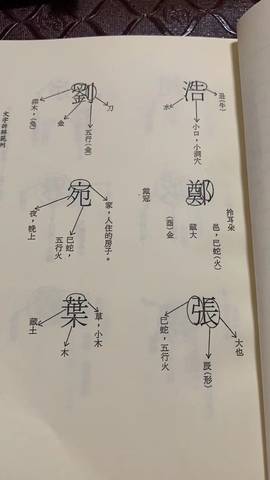 浩
丑(牛)
小口，小洞穴
水
劉
刀
五行(金)
金
卯木，(兔)
鄭
拎耳朵
邑，巳蛇(火)
藏大
(酉)金
戴冠
宛
家，人住的房子。
巳蛇，五行火
夜，晚上
張
大也
辰(形)
巳蛇，五行火
葉
草，小木
木
藏土
文字拼解範例